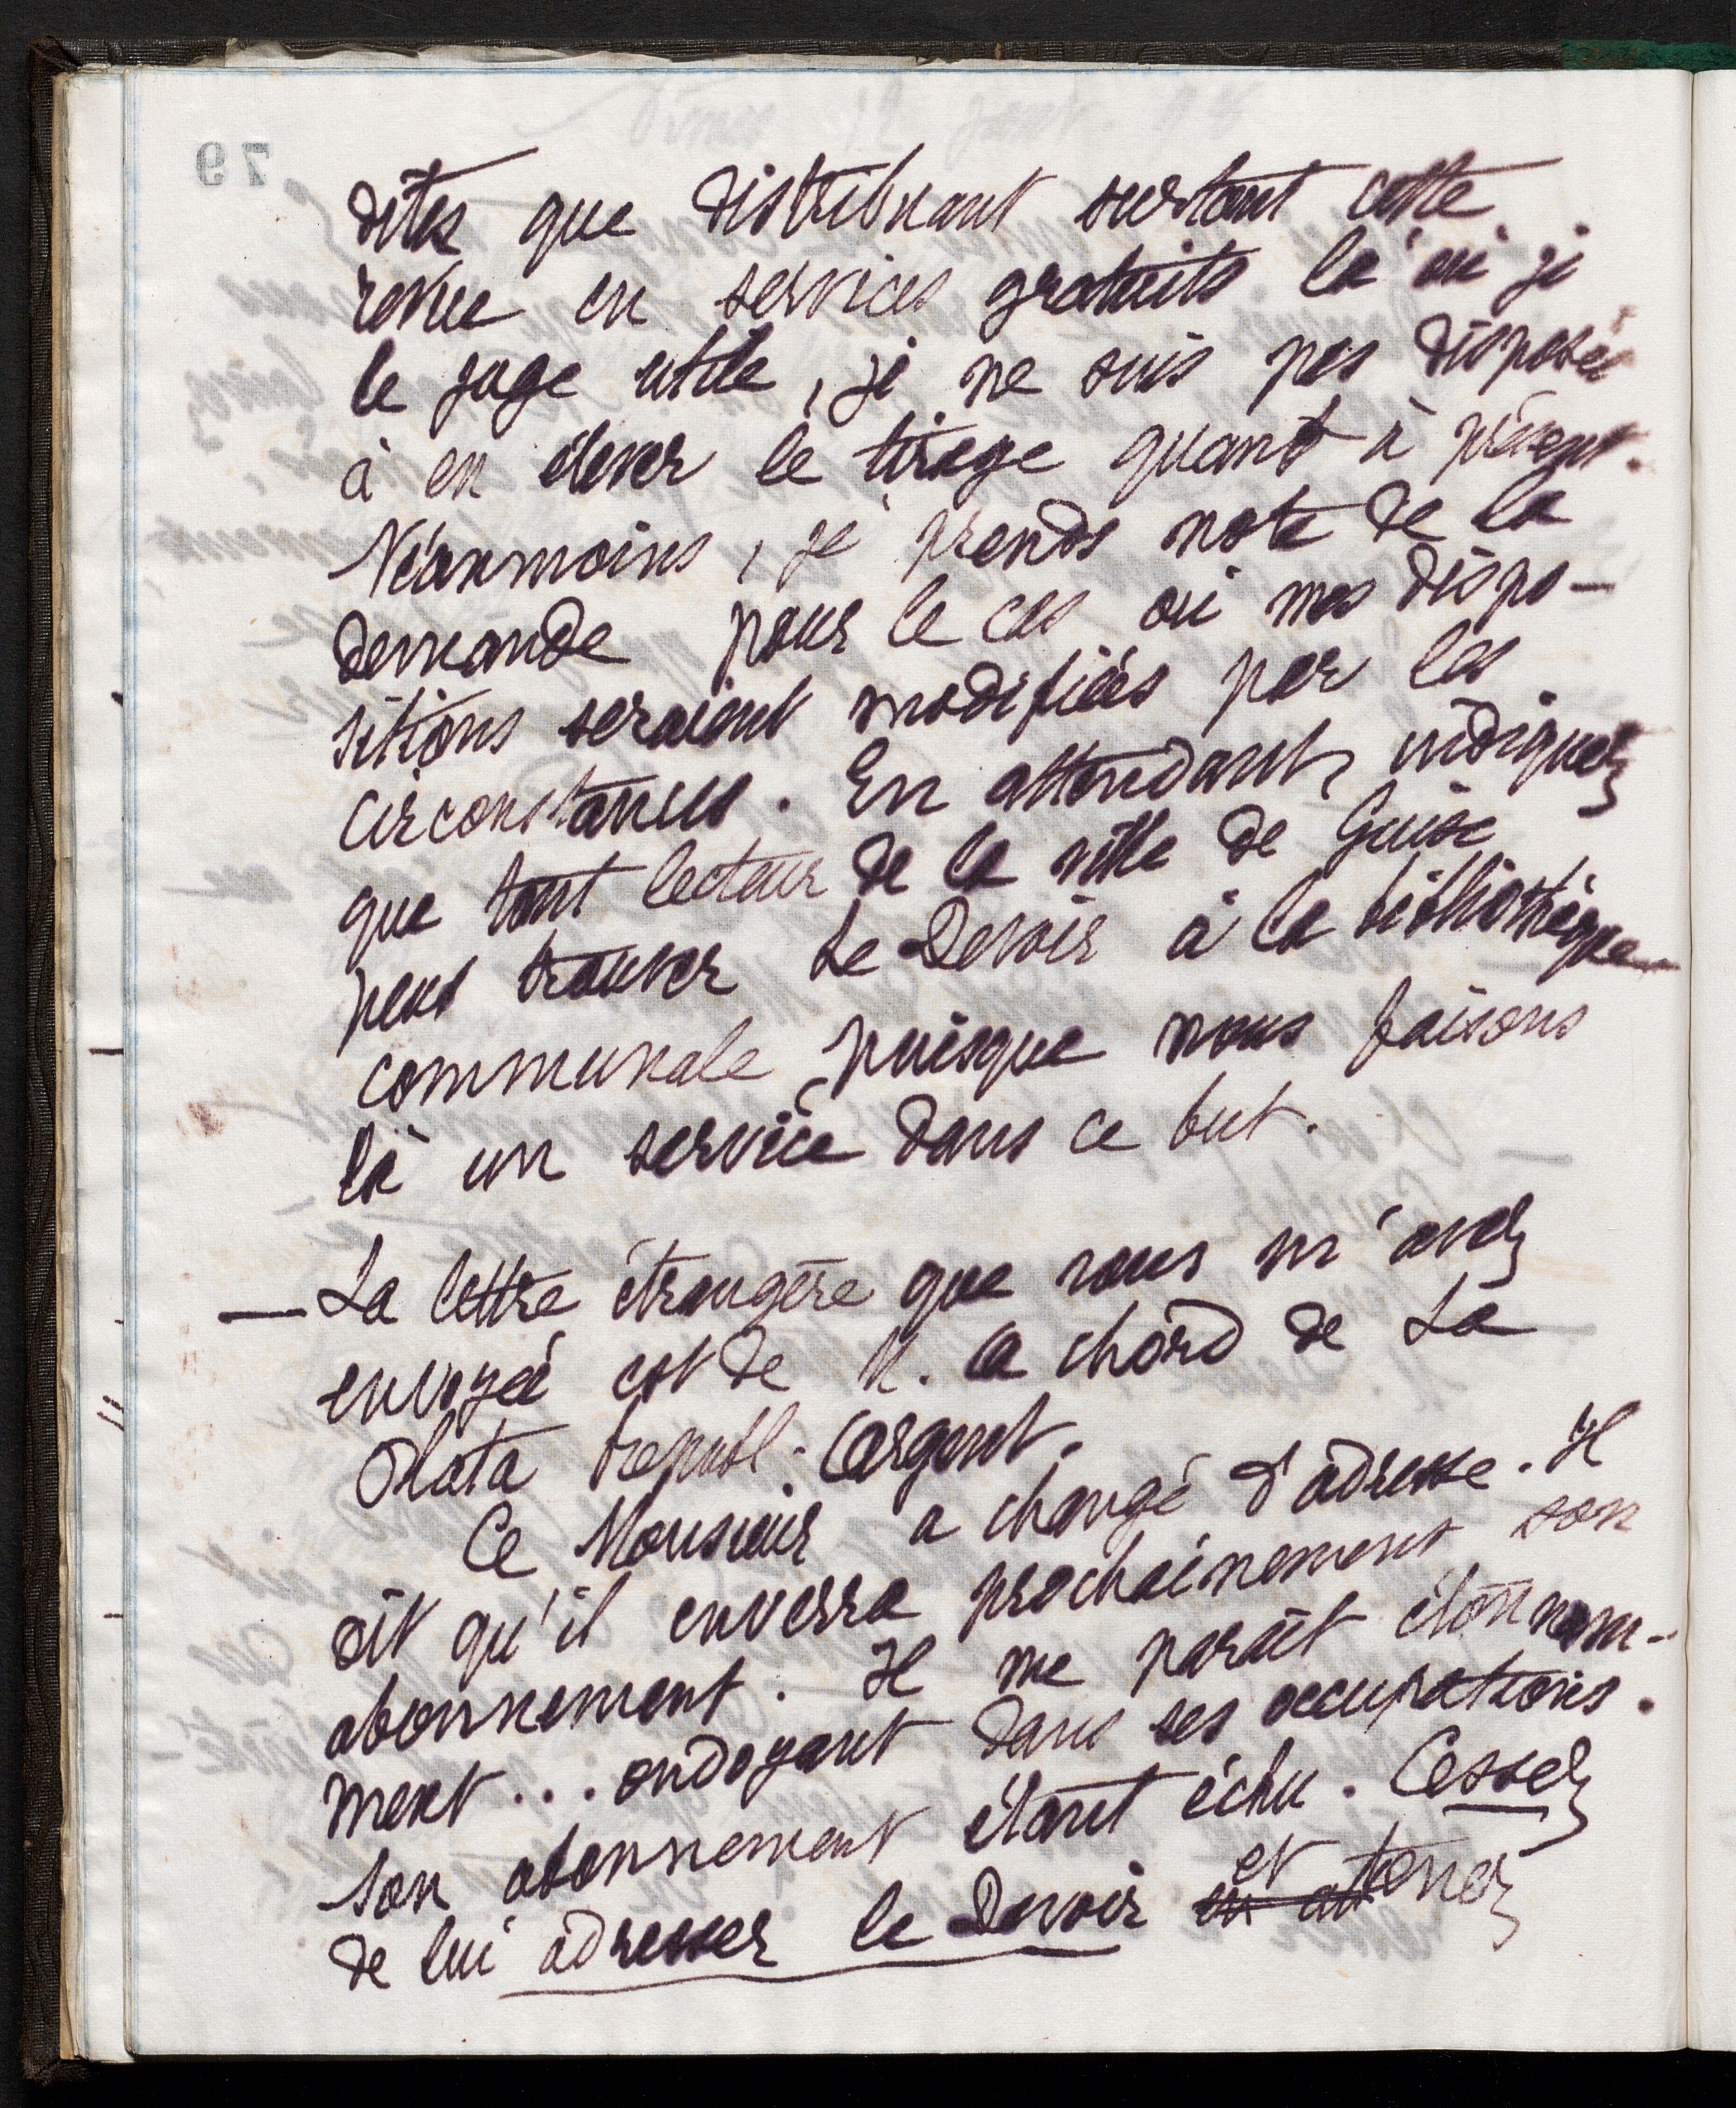 79
dites que distribuant surtout cette
revue en services gratuits là où je
le juge utile, je ne suis pas disposée
à en élever le tirage quant à présent.
Néanmoins, je prends note de la
demande pour le cas où mes dispo-
sitions seraient modifiées par les
circonstances. En attendant, indiquez
que tout lecteur de la ville de Guise
peut trouver Le Devoir à la bibliothèque
communale puisque nous faisons
là un service dans ce but.
— La lettre étrangère que vous m'avez
envoyée est de M. a chord de La
Plata républ. Argent.
Ce Monsieur a changé d'adresse. Il
dit qu'il enverra prochainement son
abonnement. Il me paraît étonnam-
ment... ondoyant dans ses occupations.
Son abonnement étant échu. Cessez
de lui adresser le Devoir et tenez